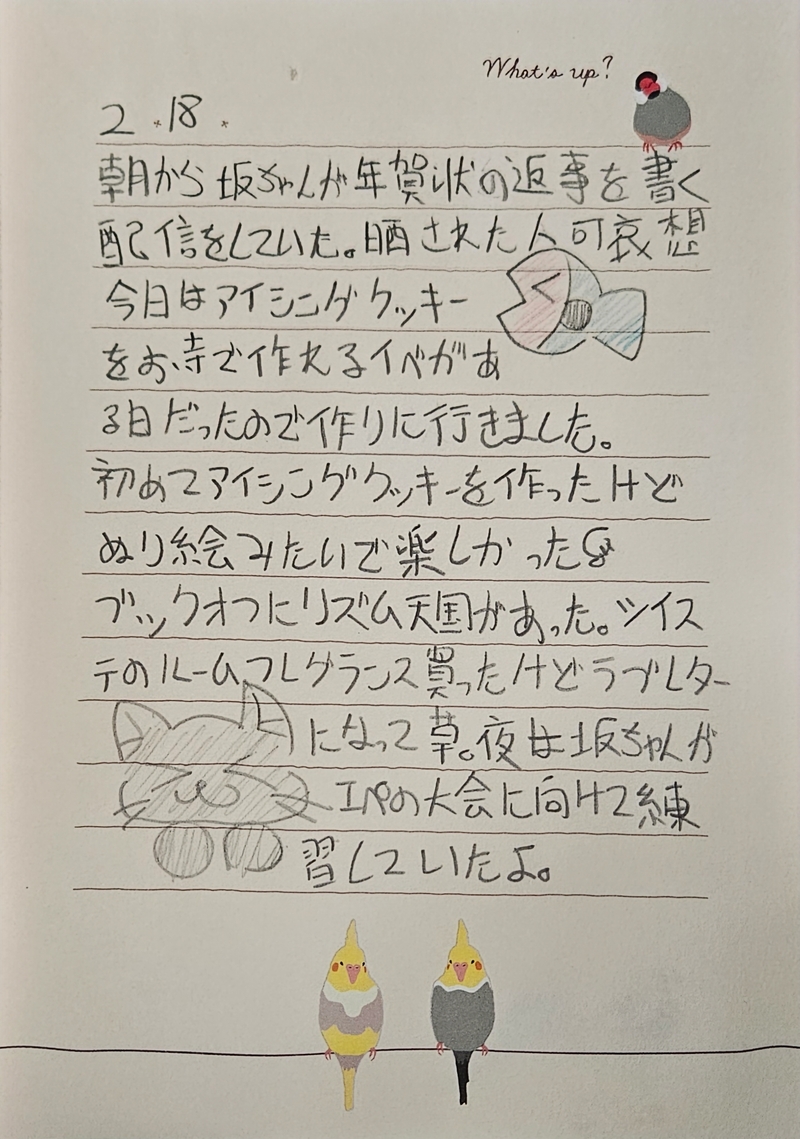 What's up?
2.18.
朝から坂ちゃんが年賀状の返事を書く
配信をしていた。晒された人可哀想
今日はアイシングクッキー
をお寺で作れるイベがあ
る日だったので作りに行きました。
初めてアイシングクッキーを作ったけど
ぬり絵みたいで楽しかった
ブックオフにリズム天国があった。ツイス
テのルームフレグランス買ったけどラブレター
になって草。夜は坂ちゃんが
エペの大会に向けて練
習していたよ。